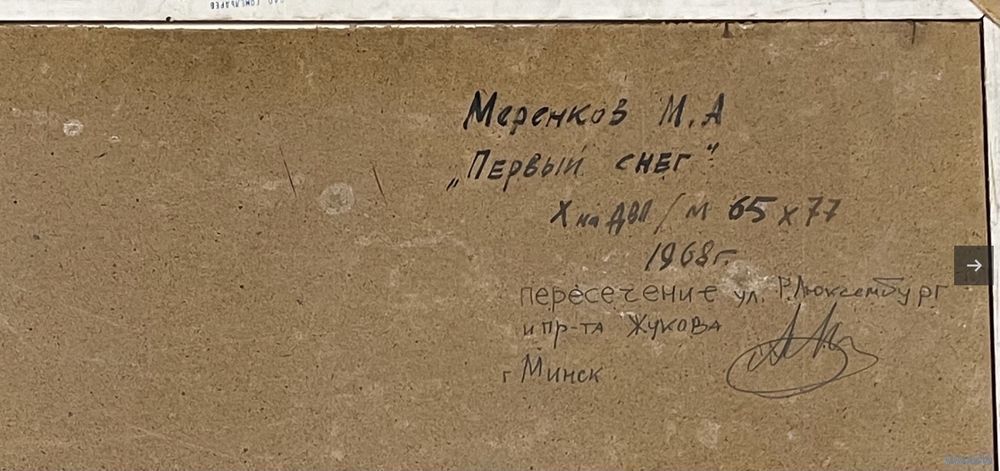 Меренков М.А
„Первый снег"
Х на ДВП / м 65 х 77
1968г.
пересечение ул. Р.Люксембург
и пр-та Жукова
г Минск